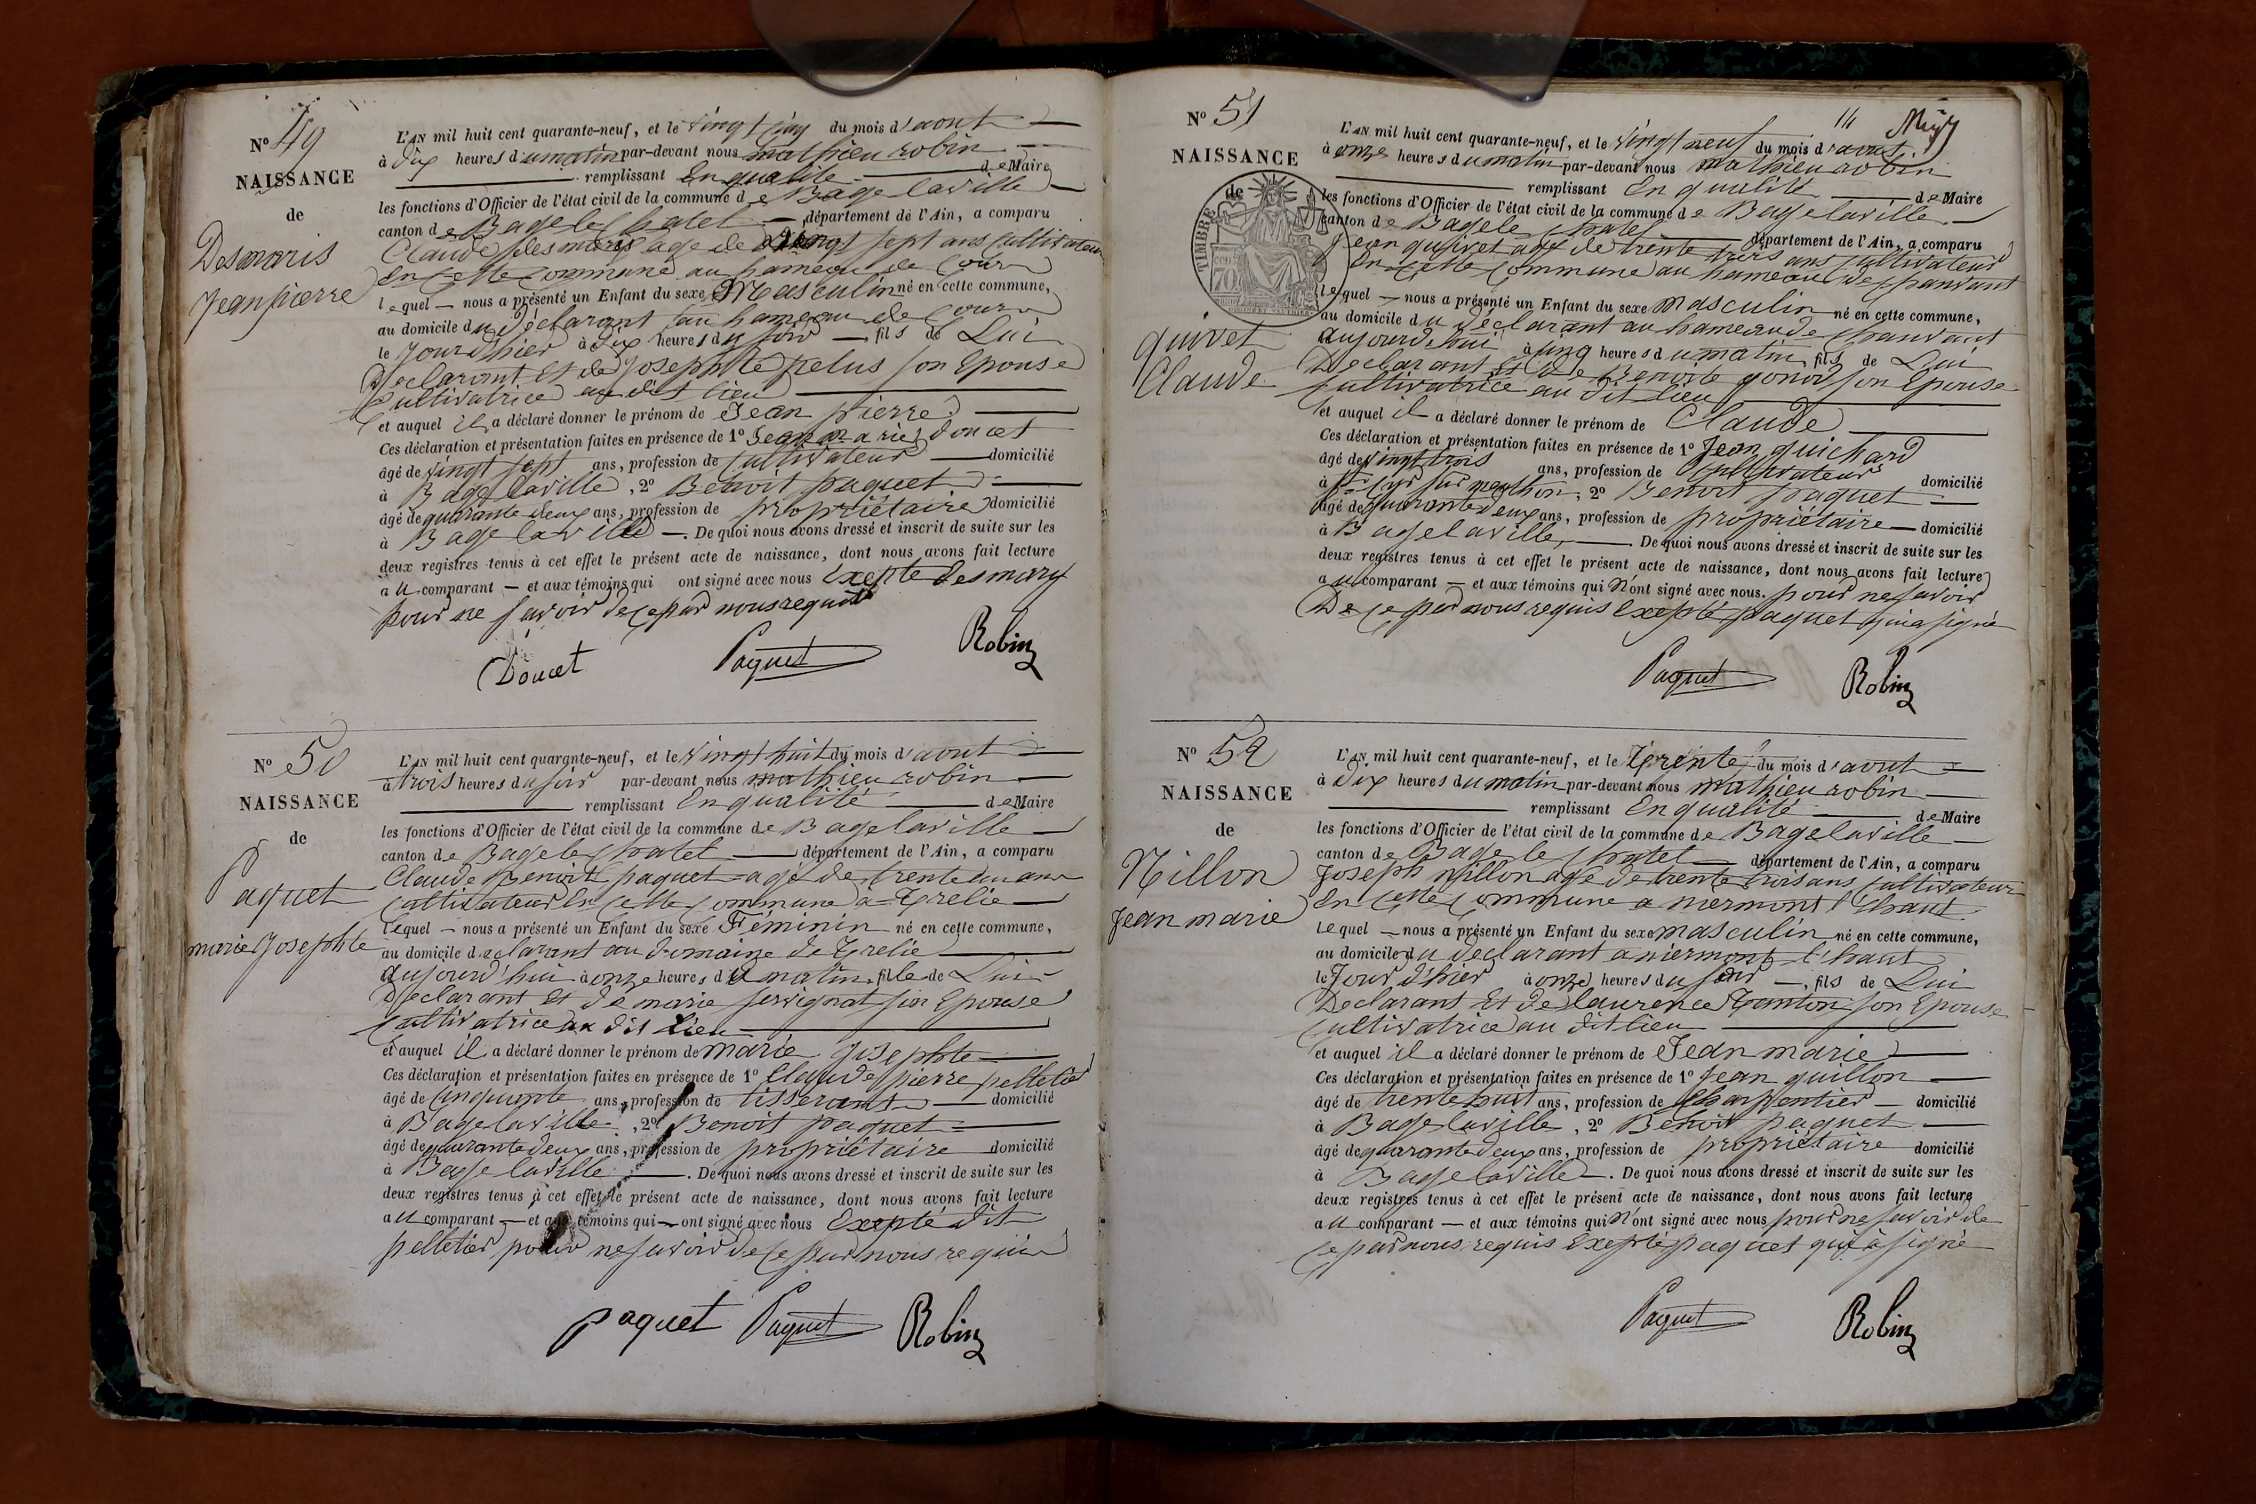 N° 49
NAISSANCE
de
Desmaris
Jean pierre
L'AN mil huit cent quarante-neuf, et le vingt cinq du mois d'aout
à dix heures du matin par-devant nous mathieu robin
remplissant En qualité de Maire
les fonctions d'Officier de l'état civil de la commune de Bage laville
canton de Bage le Chatel département de l'Ain, a comparu
Claude Desmaris age de vingt sept ans Cultivateur
En Cette Commune au hameau de Cour
lequel nous a présenté un Enfant du sexe Masculin né en cette commune,
au domicile du Déclarant au hameau de Cour
le Jour d'hier à dix heures du soir fils de Lui
Declarant Et de Josephte pelus son Epouse
Cultivatrice au dit lieu
et auquel il a déclaré donner le prénom de Jean pierre
Ces déclaration et présentation faites en présence de 1° Jean marie doucet
âgé de vingt sept ans, profession de Cultivateur domicilié
à Bage laville, 2° Benoit paquet
âgé de quarante deux ans, profession de propriétaire domicilié
à Bage laville. De quoi nous avons dressé et inscrit de suite sur les
deux registres tenus à cet effet le présent acte de naissance, dont nous avons fait lecture
au comparant et aux témoins qui ont signé avec nous Exepte Desmary
pour ne savoir de ce par nous requis
Doucet Paquet Robin
N° 50
NAISSANCE
de
Paquet
marie Josephte
L'AN mil huit cent quarante-neuf, et le vingt huit du mois d'aout
à trois heures du soir par-devant nous mathieu robin
remplissant En qualité de Maire
les fonctions d'Officier de l'état civil de la commune de Bage laville
canton de Bage le Chatel département de l'Ain, a comparu
Claude Benoit paquet agé de trente un ans
Cultivateur En Cette Commune a
lequel nous a présenté un Enfant du sexe Féminin né en cette commune,
au domicile declarant au domaine de
aujourd'hui à onze heures du matin fille de Lui
Declarant Et de marie servignat son Epouse
Cultivatrice au dit Lieu
et auquel il a déclaré donner le prénom de marie josephte
Ces déclaration et présentation faites en présence de 1° Claude pierre pelletier
âgé de Cinquante ans, profession de tisserant domicilié
à Bage laville, 2° Benoit paquet
âgé de quarante deux ans, profession de propriétaire domicilié
à Bage laville. De quoi nous avons dressé et inscrit de suite sur les
deux registres tenus à cet effet le présent acte de naissance, dont nous avons fait lecture
au comparant et aux témoins qui ont signé avec nous Exepté dit
pelletier pour ne savoir de ce par nous requis
paquet Paquet Robin
14
N° 51
NAISSANCE
de
TIMBRE
quivet
Claude
L'AN mil huit cent quarante-neuf, et le vingt neuf du mois d'aout
à onze heures du matin par-devant nous mathieu robin
remplissant En qualité de Maire
les fonctions d'Officier de l'état civil de la commune de Bage laville
canton de Bage le Chatel département de l'Ain, a comparu
Jean quivet age de trente trois ans Cultivateur
En Cette Commune au hameau de Chanvant
lequel nous a présenté un Enfant du sexe masculin né en cette commune,
au domicile du déclarant au hameau de Chanvant
aujourdhui à Cinq heures du matin fils de Lui
Declarant Et de Benoite gonod son Epouse
Cultivatrice au dit lieu
et auquel il a déclaré donner le prénom de Claude
Ces déclaration et présentation faites en présence de 1° Jean guichard
âgé de vingt trois ans, profession de Cultivateur domicilié
à St Cyr sur menthon, 2° Benoit paquet
âgé de quarante deux ans, profession de propriétaire domicilié
à Bage laville, De quoi nous avons dressé et inscrit de suite sur les
deux registres tenus à cet effet le présent acte de naissance, dont nous avons fait lecture
au comparant et aux témoins qui n'ont signé avec nous. pour ne savoir
De ce par nous requis Exepté paquet qui a signé
Paquet Robin
N° 52
NAISSANCE
de
Nillon
Jean marie
L'AN mil huit cent quarante-neuf, et le trente du mois d'aout
à dix heures du matin par-devant nous mathieu robin
remplissant En qualité de Maire
les fonctions d'Officier de l'état civil de la commune de Bage laville
canton de Bage le Chatel département de l'Ain, a comparu
Joseph Nillon age de trente trois ans Cultivateur
En Cette Commune a mermont l'haut
lequel nous a présenté un Enfant du sexe masculin né en cette commune,
au domicile du declarant a mermont l'haut
le Jour d'hier à onze heures du soir, fils de Lui
Declarant Et de laurence tanton son Epouse
Cultivatrice au dit lieu
et auquel il a déclaré donner le prénom de Jean marie
Ces déclaration et présentation faites en présence de 1° Jean guillon
âgé de trente huit ans, profession de Charpentier domicilié
à Bage laville, 2° Benoit paquet
âgé de quarante deux ans, profession de propriétaire domicilié
à Bage laville. De quoi nous avons dressé et inscrit de suite sur les
deux registres tenus à cet effet le présent acte de naissance, dont nous avons fait lecture
au comparant et aux témoins qui n'ont signé avec nous pour ne savoir de
ce par nous requis Exepté paquet qui à signé
Paquet Robin